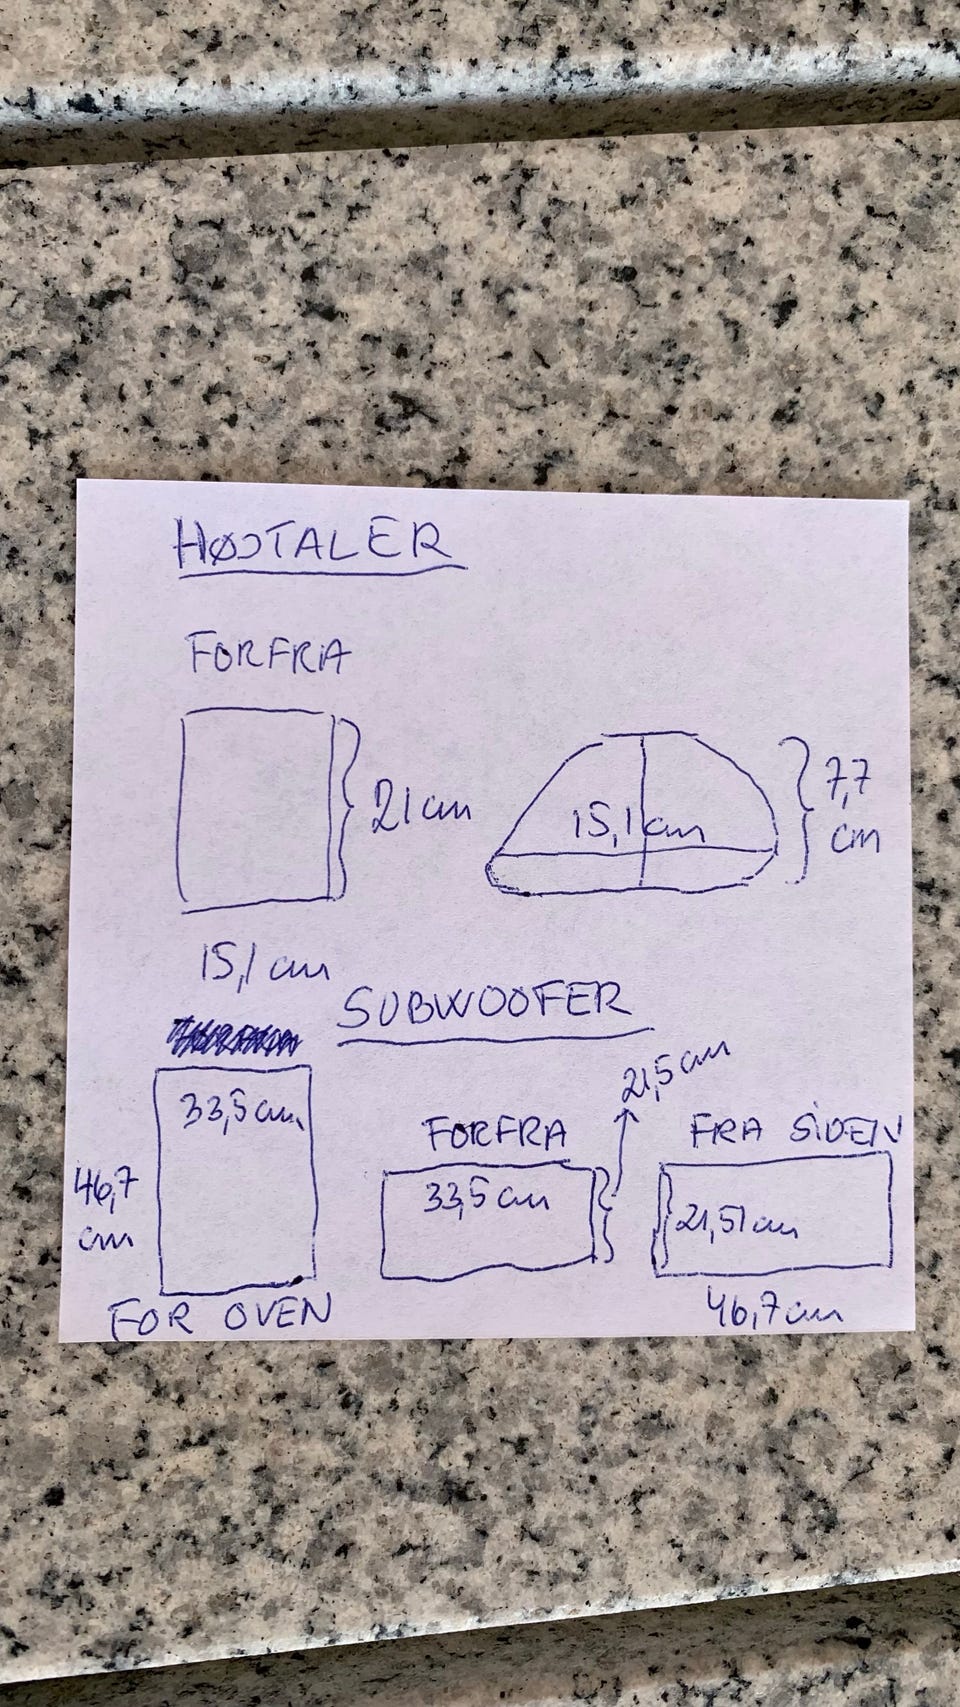 HØJTALER
FORFRA
21 cm
15,1 cm
7,7
cm
15,1 cm
SUBWOOFER
33,5 cm
46,7
cm
FOR OVEN
FORFRA
33,5 cm
21,5 cm
FRA SIDEN
21,51 cm
46,7 cm